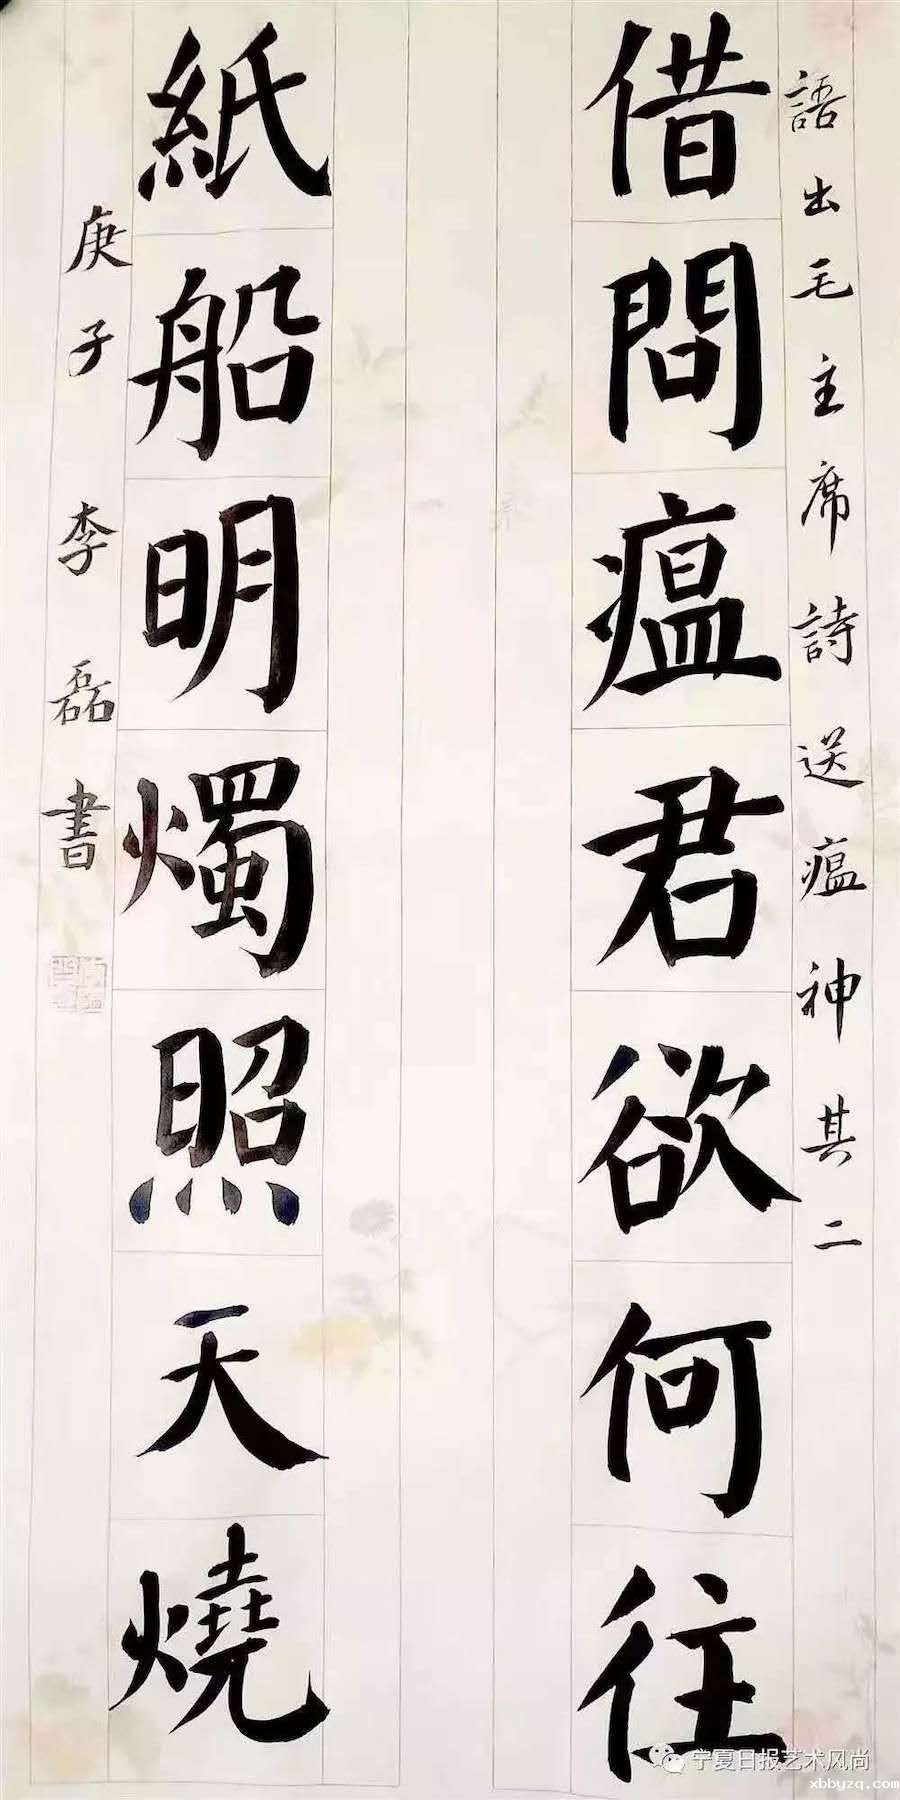 語出毛主席詩送瘟神其二
借問瘟君欲何往
紙船明燭照天燒
庚子李磊書
宁夏日报艺术风尚
xbbyzq.com